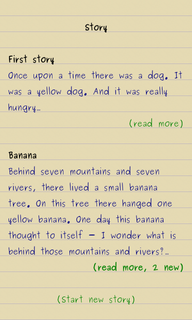 Story
First story
Once upon a time there was a dog. It
was a yellow dog. And it was really
hungry...
(read more)
Banana
Behind seven mountains and seven
rivers, there lived a small banana
tree. On this tree there hanged one
yellow banana. One day this banana
thought to itself – I wonder what is
behind those mountains and rivers?...
(read more, 2 new)
(Start new story)